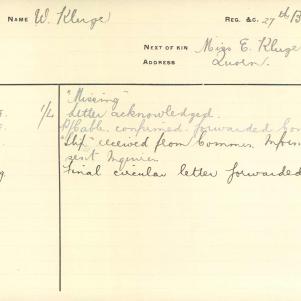 NAME W. Kluge REG. &C. 27th/B
NEXT OF KIN Miss E. Kluge
ADDRESS Quorn.
"Missing"
1/L Letter acknowledged.
P/Cable. confirmed. forwarded
"Slip" received from Commun.
sent Inquiries
Final circular letter forwarded